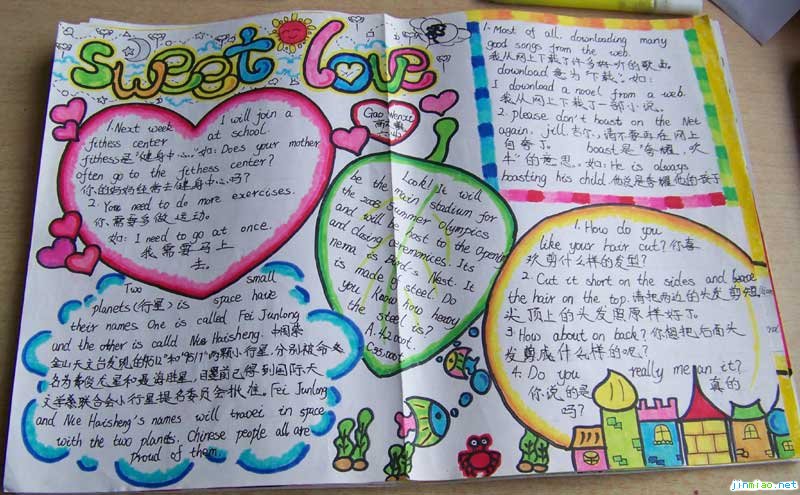 sweet love
1. Next week I will join a
fitness center at school.
fitness是“健身中心”.如: Does your mother
often go to the fithess center?
你的妈妈经常去健身中心吗?
2. You need to do more exercises.
你需要多做运动。
如: I need to go at once.
我需要马上
去。
Gao Wenxie
Look! It will
be the main stadium for
the 2008 Summer Olympics
and will be host to the Opening
and closing ceremonies. Its
nema is Bird's Nest. It
is made of steel. Do
you know how heavy
the steel is?
A. 42000t.
C35000t
1. Most of all. downloading many
good songs from the web.
我从网上下载了许多好听的歌曲
download 意为“下载”. 如:
I download a novel from a web.
我从网上下载了一部小说。
2. please don't boast on the Net
again, jill 吉尔,请不要再在网上
自夸了。 boast是“夸耀,吹
牛”的意思。如: He is always
boosting his child. 他总是夸耀他的孩子
Two small
planets(行星) is space have
their names One is called Fei Junlong
and the other is called Nie Haisheng. 中国
金山天文台发现的“9512”和“9517”两颗小行星,分别被命
名为费俊龙星和聂海胜星,目前已得到国际天
文学联合会小行星提名委员会批准。Fei Junlong
and Nie Haisheng's names will travel in space
with the two planets. Chinese people all are
proud of them
1. How do you
like your hair cut? 你喜
欢剪什么样的发型?
2. Cut it short on the sides and leave
the hair on the top. 请把两边的头发剪短,
头顶上的头发照原样好了。
3. How about on back? 你想把后面头
发剪成什么样的呢?
4. Do you really mean it?
你说的是 真的
吗?
jinmiao.net